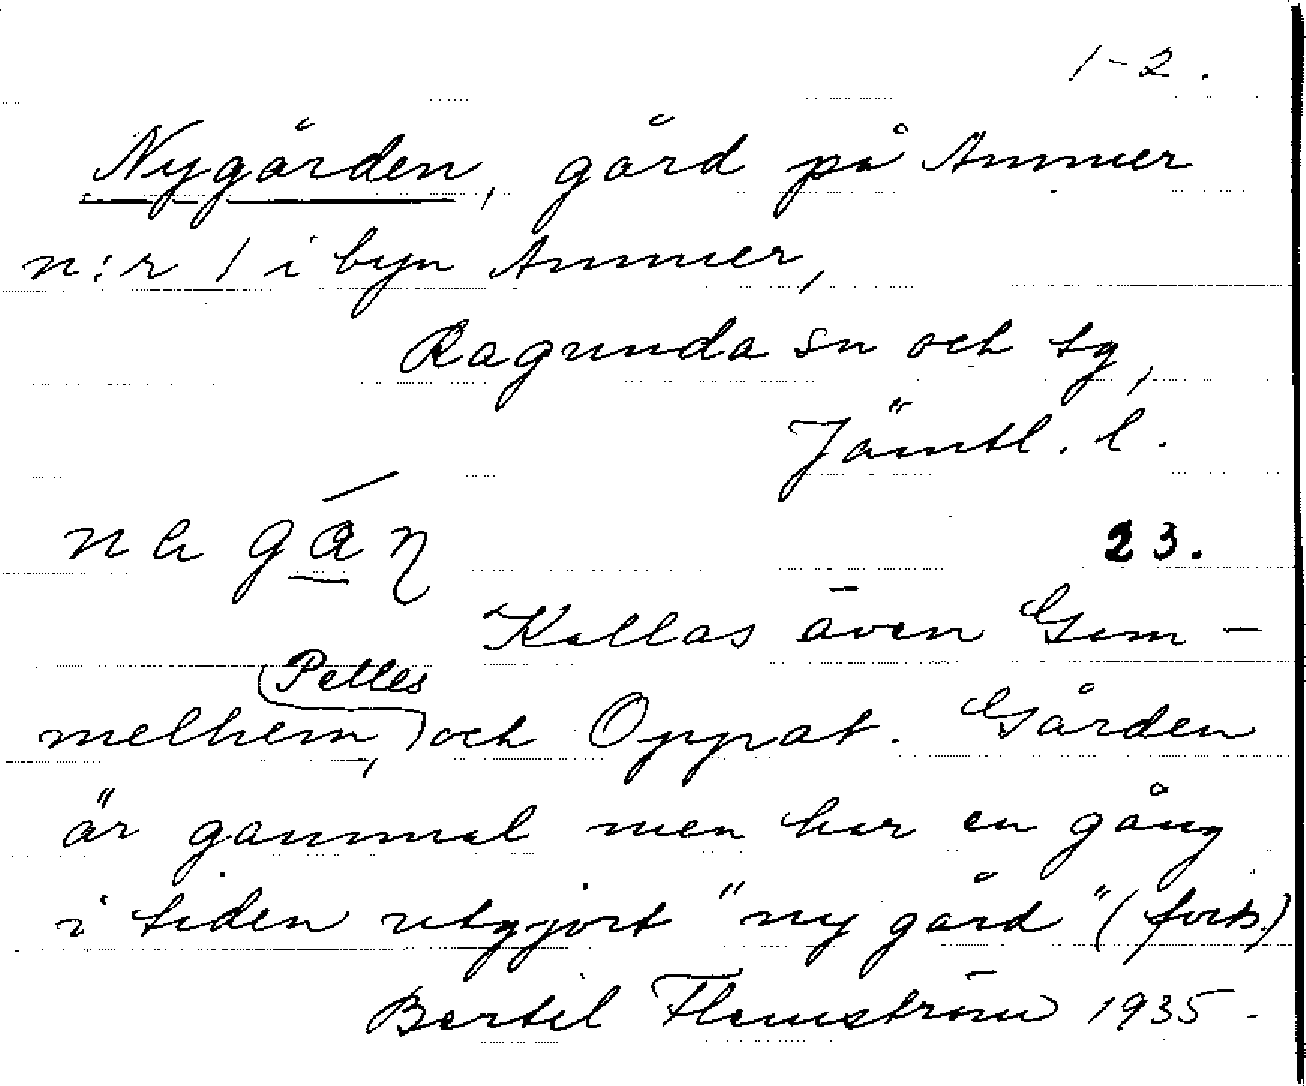 1-2.
Nygården, gård på Ammer
n:r 1 i byn Ammer,
Ragunda sn och tg,
Jämtl. l.
23.
Kallas även Gam-
Pelles
melhem, och Oppat. Gården
är gammal men har en gång
i tiden utgjort "ny gård" (forts.)
Bertil Flemström 1935.